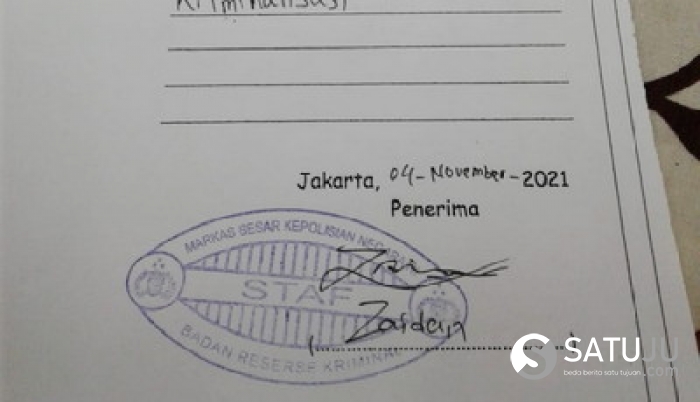 Kriminalisasi
Jakarta, 04-November-2021
Penerima
MARKAS BESAR KEPOLISIAN NEGARA
STAF
Zaidan
BADAN RESERSE KRIMINAL
SATUJU
beda berita satu tujuan.com